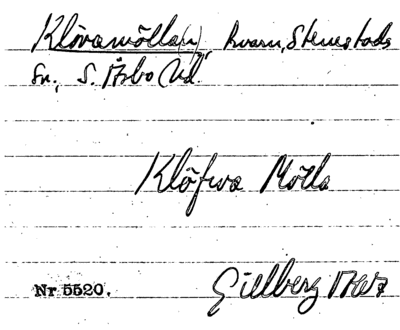 Klövamölla(n), kvarn, Stenestads
sn, S. Åsbo hd.
Klöfwa Mölla
Nr 5520. Gillberg